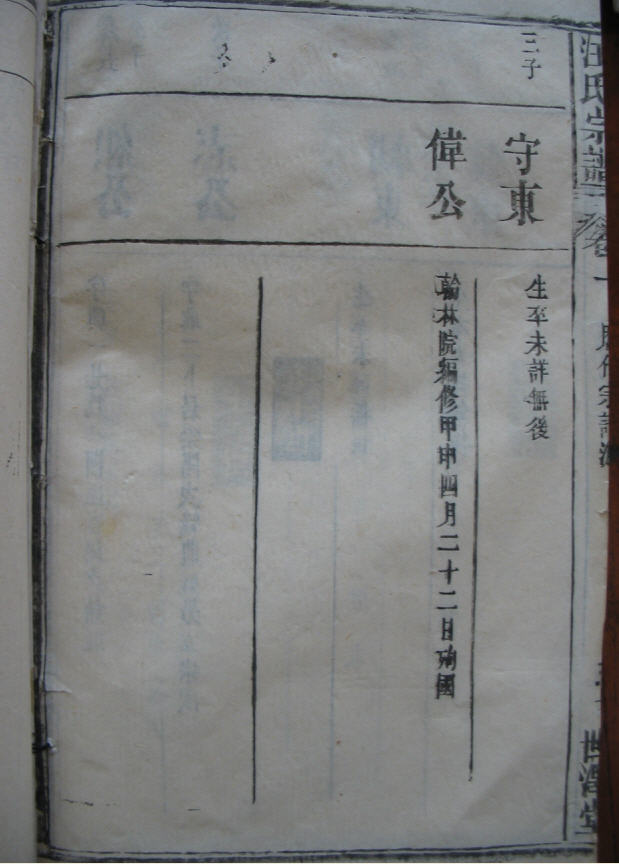 汪氏宗譜
卷一
世澤堂
三子
守東
生卒未詳無後
偉公
翰林院編修甲申四月二十二日殉國